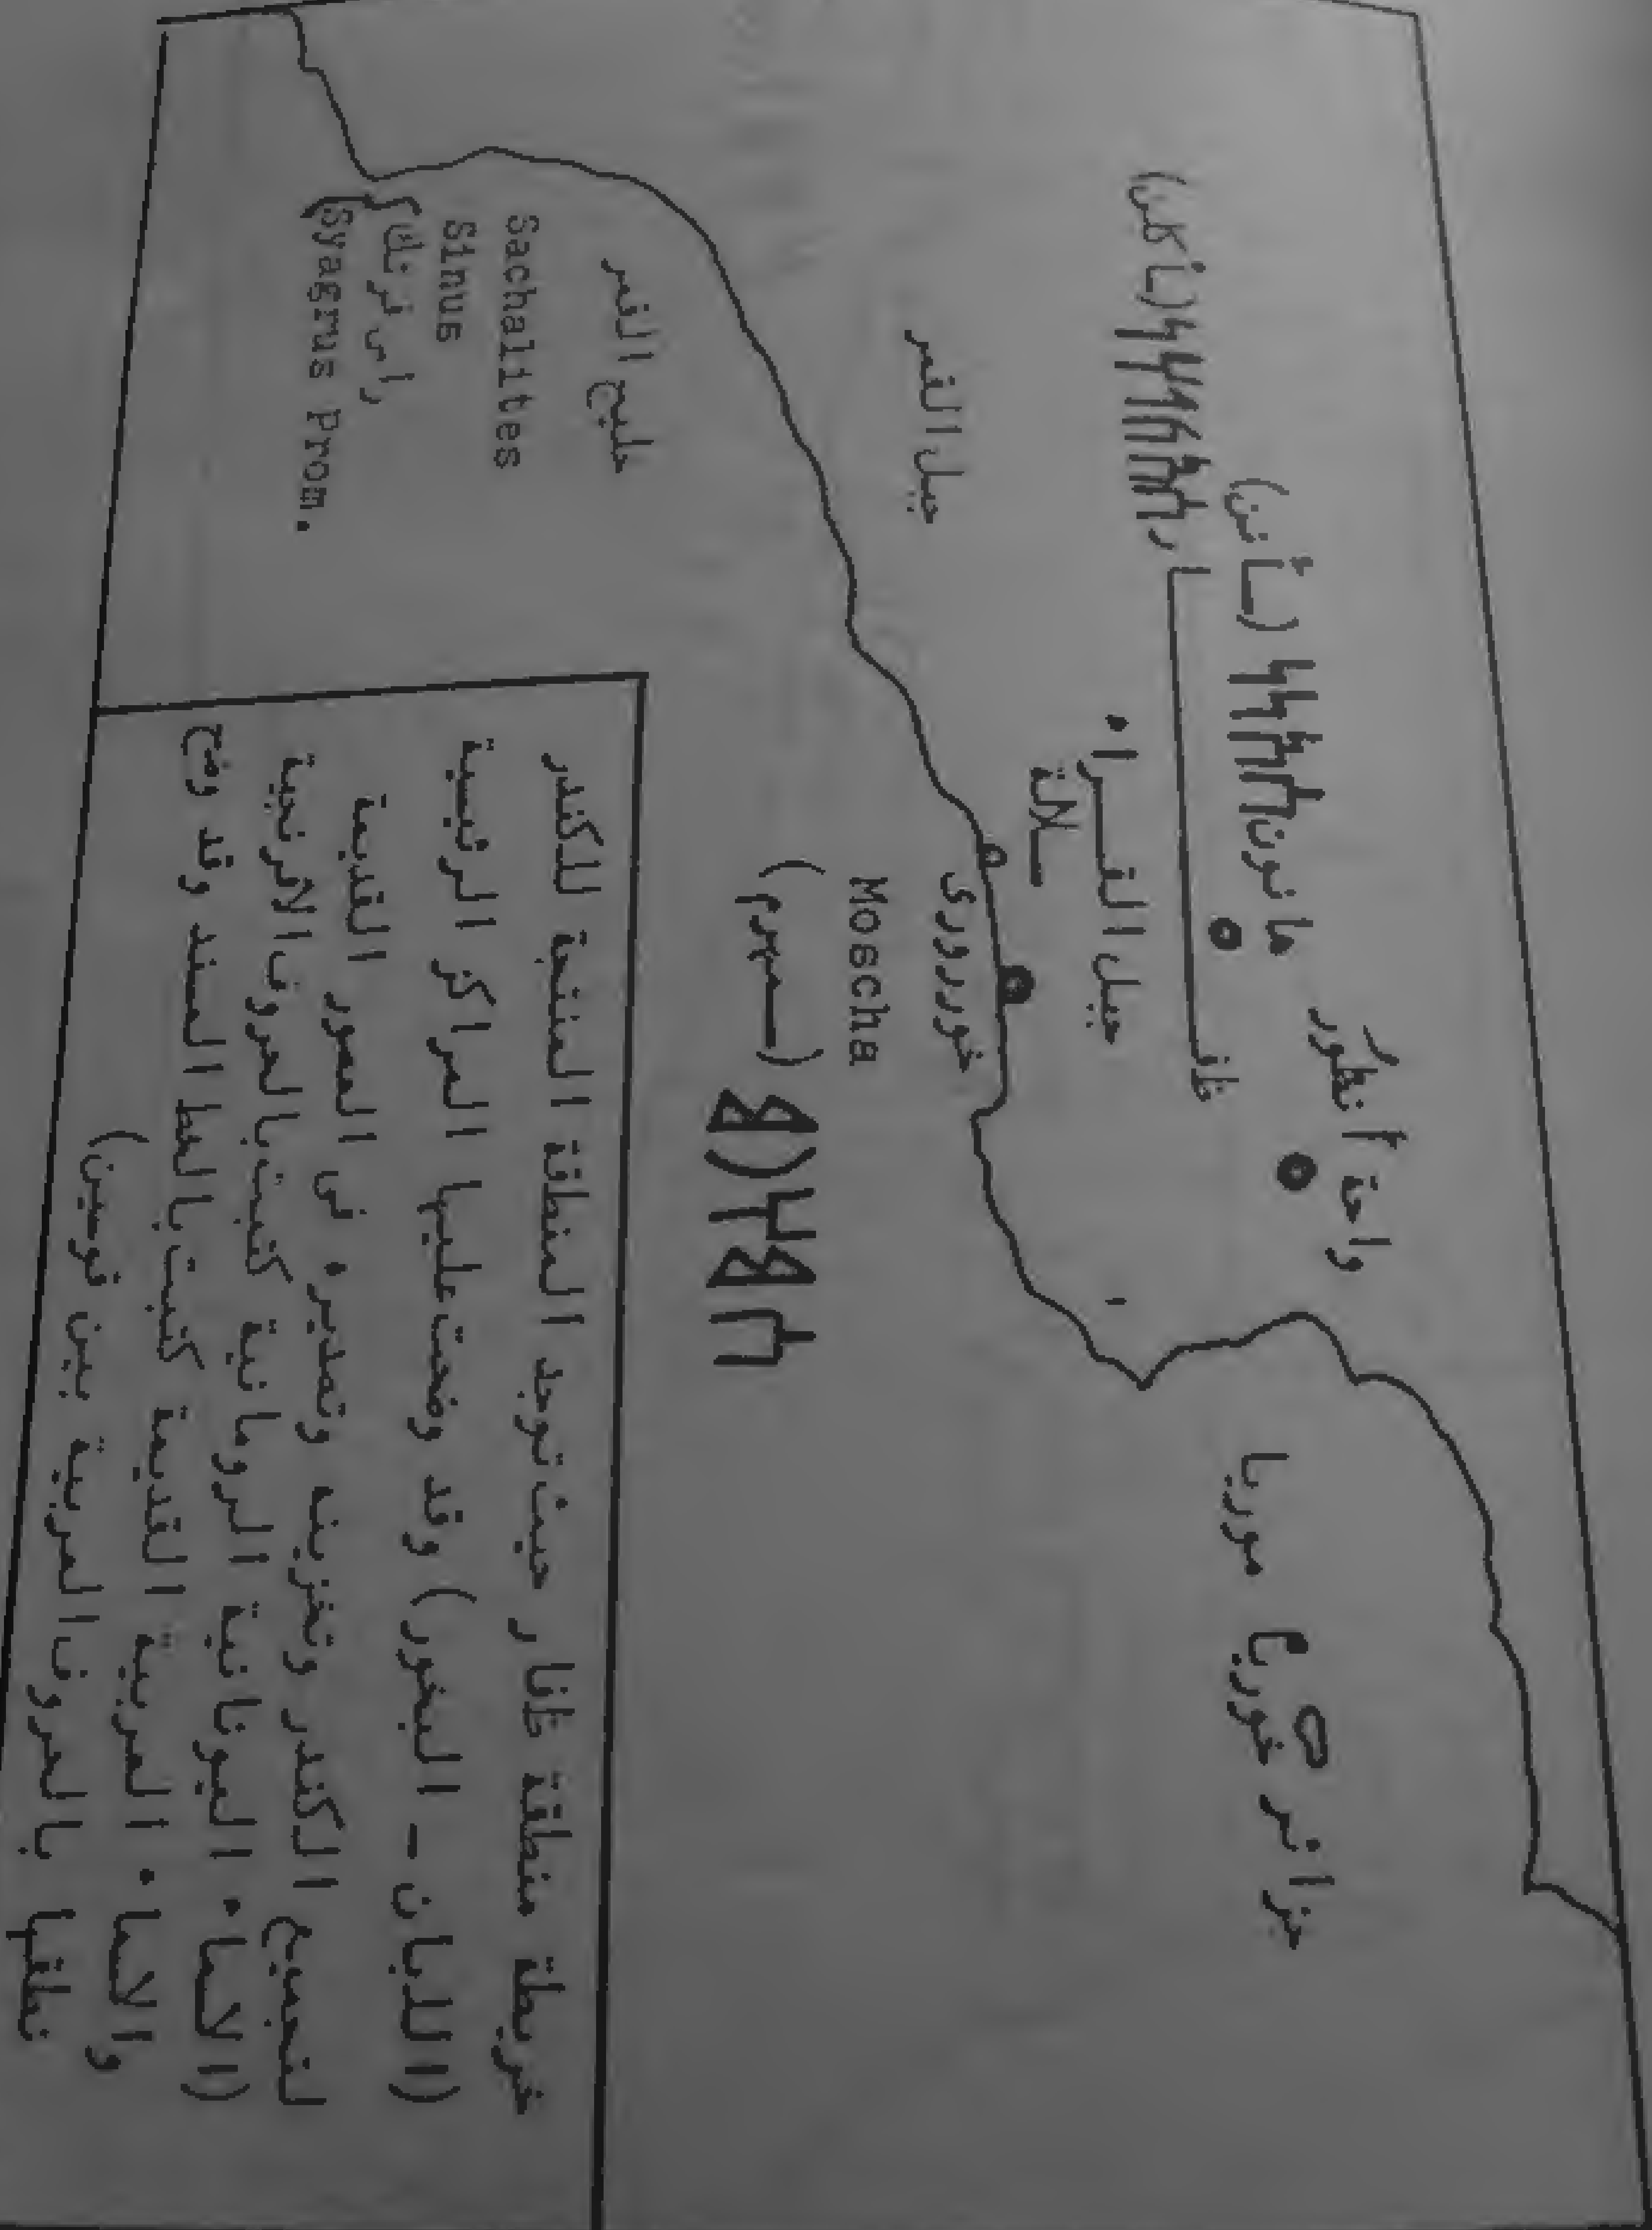 واحة أنظور
حانون
(سأنن)
ظفار
(سأكلن)
جزائر خوريا موريا
جبل القراء
صلالة
جبل القمر
خور روري
Moscha
(سمهرم)
𐩪𐩣𐩠𐩧𐩣
خليج القمر
Sachalites
Sinus
راس فرتك
(Syagrus Prom.
خريطة منطقة ظفار حيث توجد المنطقة المنتجة للكندر
(اللبان - البخور) وقد وضحت عليها المراكز الرئيسية
لتجميع الكندر وتخزينه وتصديره في العصور القديمة
(الاسماء اليونانية الرومانية كتبت بالحروف الافرنجية
والاسماء العربية القديمة كتبت بالخط المسند وقد وضح
نطقها بالحروف العربية بين قوسين)